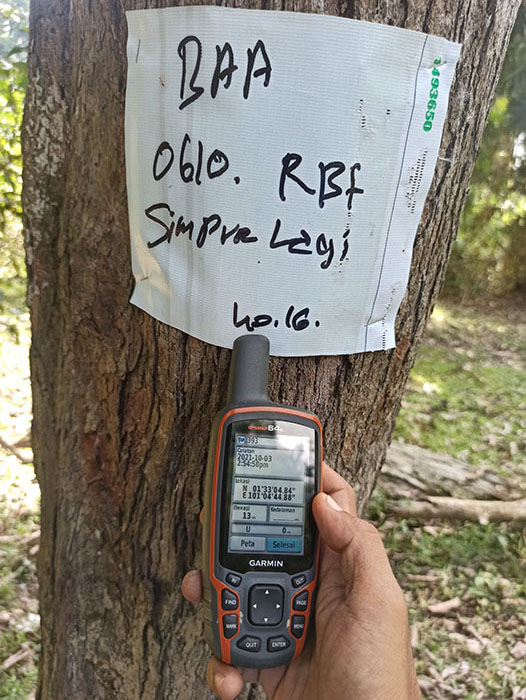 BAA
0610. RBf
Simpra Lagi
no.16.
1493650
GPSMAP 64s
393
Catatan
2021-10-03
2:54:58pm
Lokasi
N 01°33'04.84"
E 101°04'44.88"
Elevasi Kedalaman
13 m
U 0 m
Peta Selesai
GARMIN
IN OUT
FIND PAGE
MARK MENU
QUIT ENTER